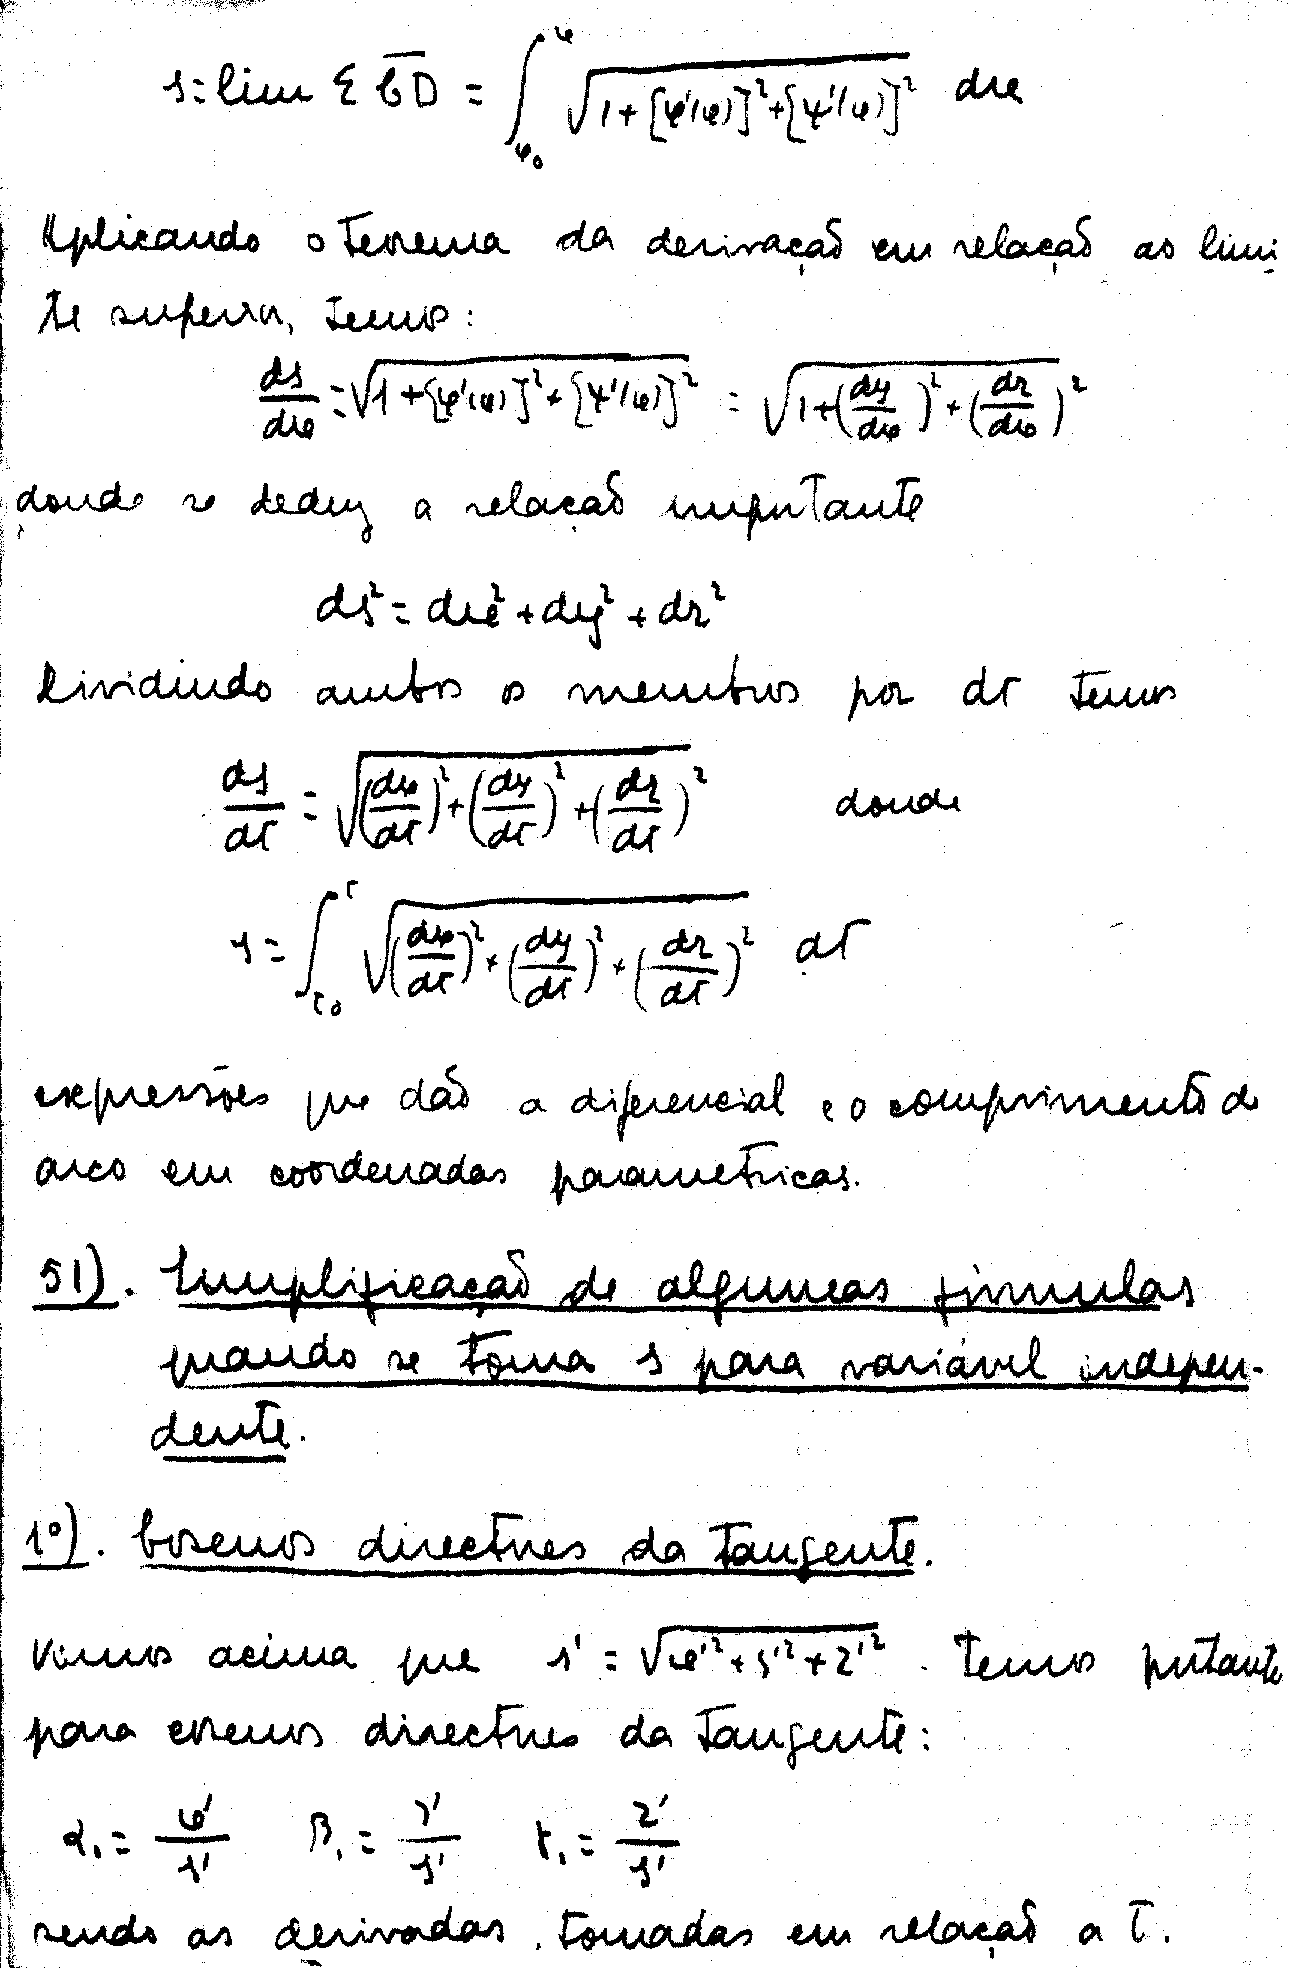 s = lim Σ \overline{CD} = ∫_{x₀}^{x} √(1+[φ'(x)]²+[ψ'(x)]²) dx
Aplicando o teorema da derivação em relação ao limi-
te superior, temos:
ds/dx = √(1+[φ'(x)]²+[ψ'(x)]²) = √(1+(dy/dx)²+(dz/dx)²)
donde se deduz a relação importante
ds² = dx² + dy² + dz²
Dividindo ambos os membros por dt temos
ds/dt = √((dx/dt)²+(dy/dt)²+(dz/dt)²) donde
s = ∫_{t₀}^{t} √((dx/dt)²+(dy/dt)²+(dz/dt)²) dt
expressões que dão a diferencial e o comprimento do
arco em coordenadas parametricas.
51). Simplificação de algumas fórmulas
quando se toma s para variável indepen-
dente.
1º). Cosenos directores da tangente.
Vimos acima que s' = √(x'²+y'²+z'²). Temos portanto
para cosenos directores da tangente:
α₁ = x'/s' β₁ = y'/s' γ₁ = z'/s'
sendo as derivadas tomadas em relação a t.